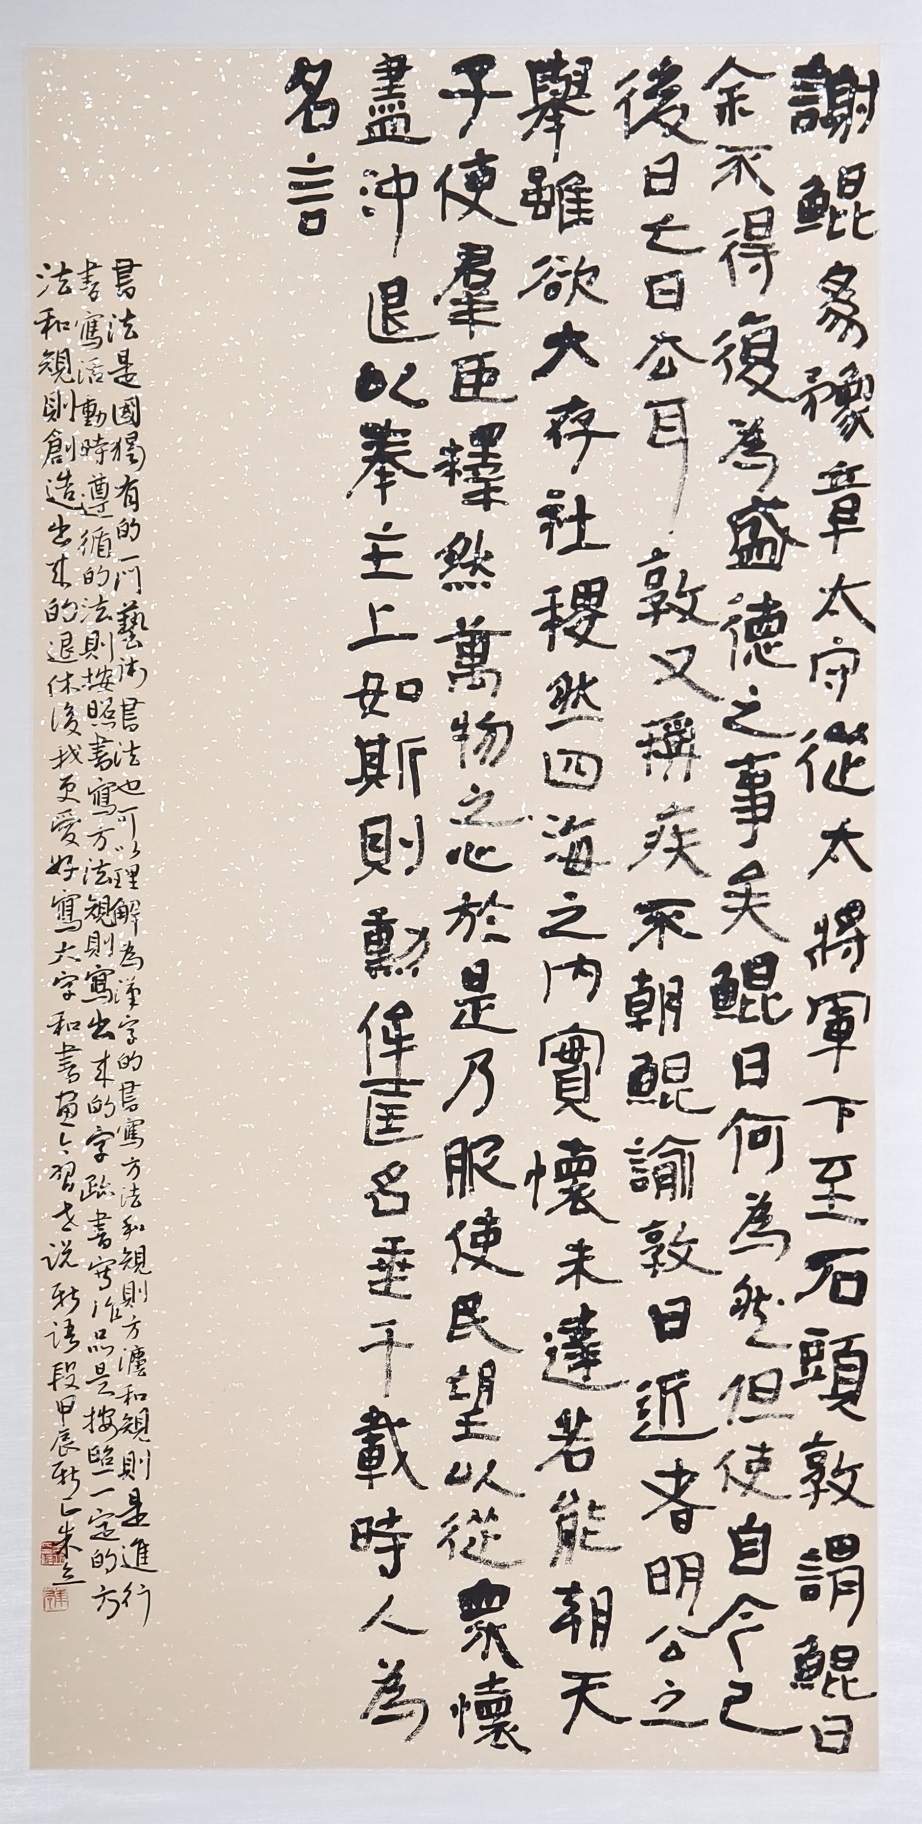 謝鯤為豫章太守從太將軍下至石頭敦謂鯤曰
余不得復為盛德之事矣鯤曰何為然但使自今已
後日亡日去耳敦又稱疾不朝鯤諭敦曰近者明公之
舉雖欲大存社稷然四海之內實懷未達若能朝天
子使羣臣釋然萬物之心於是乃服使民望以從眾懷
盡沖退以奉主上如斯則勳侔匡名垂千載時人為
名言
書法是國獨有的一門藝術書法也可以理解為漢字的書寫方法和規則方法和規則是進行
書寫活動時遵循的法則按照書寫方法規則寫出來的字跡書寫作品是按照一定的方
法和規則創造出來的退休後我更愛好寫大字和書畫今習世說新語段甲辰新正朱立